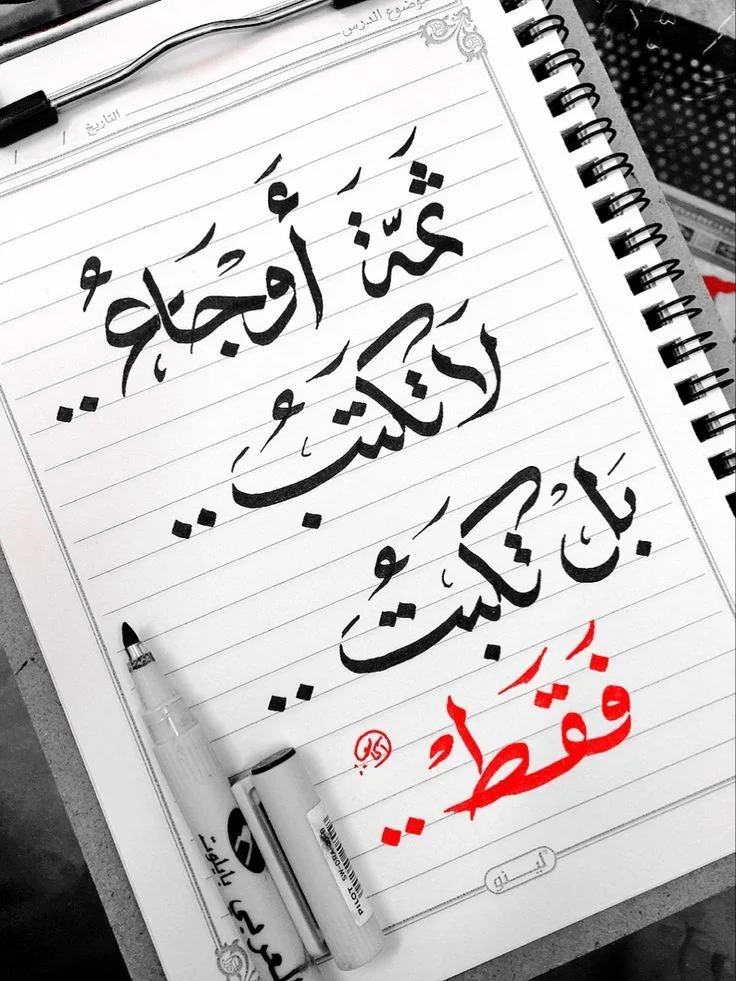 موضوع الدرس
التاريخ / /
ثَمَّةَ أَوْجَاعٌ ..
لَا تُكْتَبُ ..
بَلْ تُكْبَتُ ..
فَقَطْ ..
لينو
العربي بايلوت
PILOT